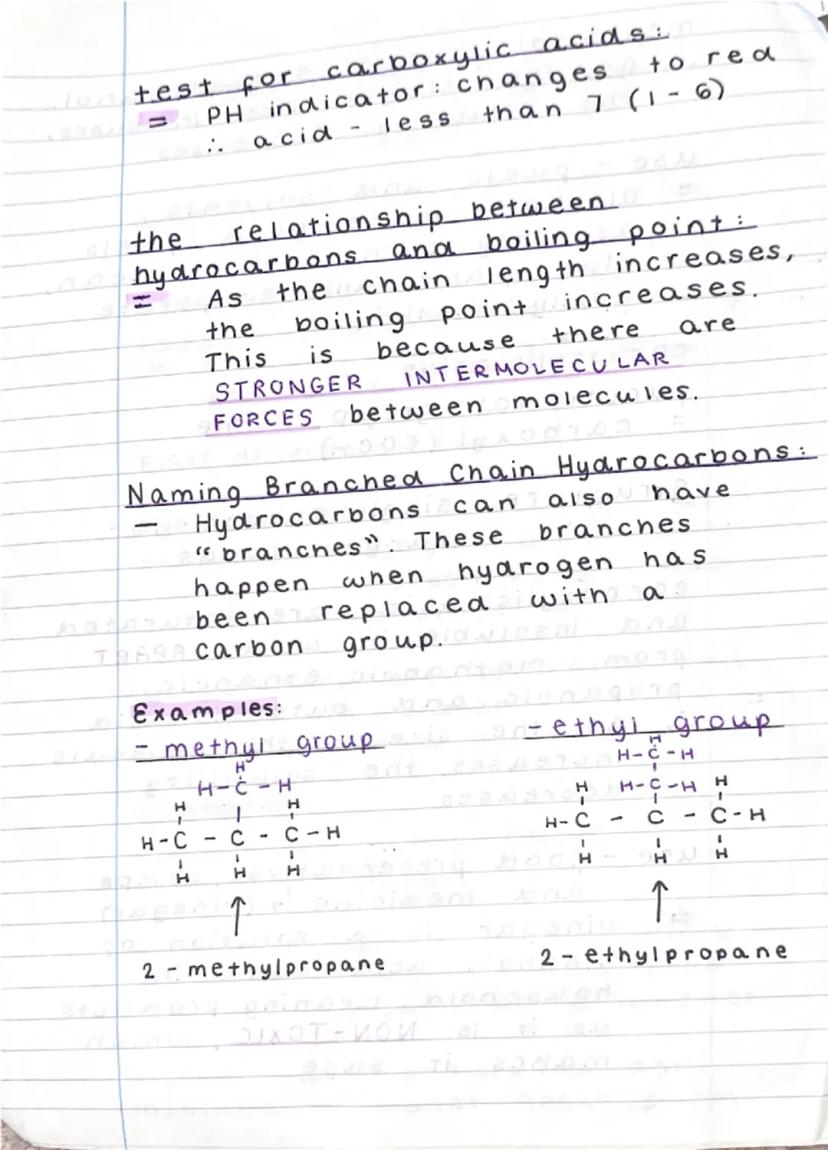 test for carboxylic acids:
= PH indicator: changes to red
∴ acid - less than 7 (1 - 6)
the relationship between
hydrocarbons and boiling point:
= As the chain length increases,
the boiling point increases.
This is because there are
STRONGER INTERMOLECULAR
FORCES between molecules.
Naming Branched Chain Hydrocarbons:
— Hydrocarbons can also have
"branches". These branches
happen when hydrogen has
been replaced with a
carbon group.
Examples:
- methyl group
H
H-C-H
H H
H-C - C - C-H
H H H
↑
2-methylpropane
- ethyl group
H
H-C-H
H H-C-H H
H-C - C - C-H
H H H
↑
2-ethylpropane